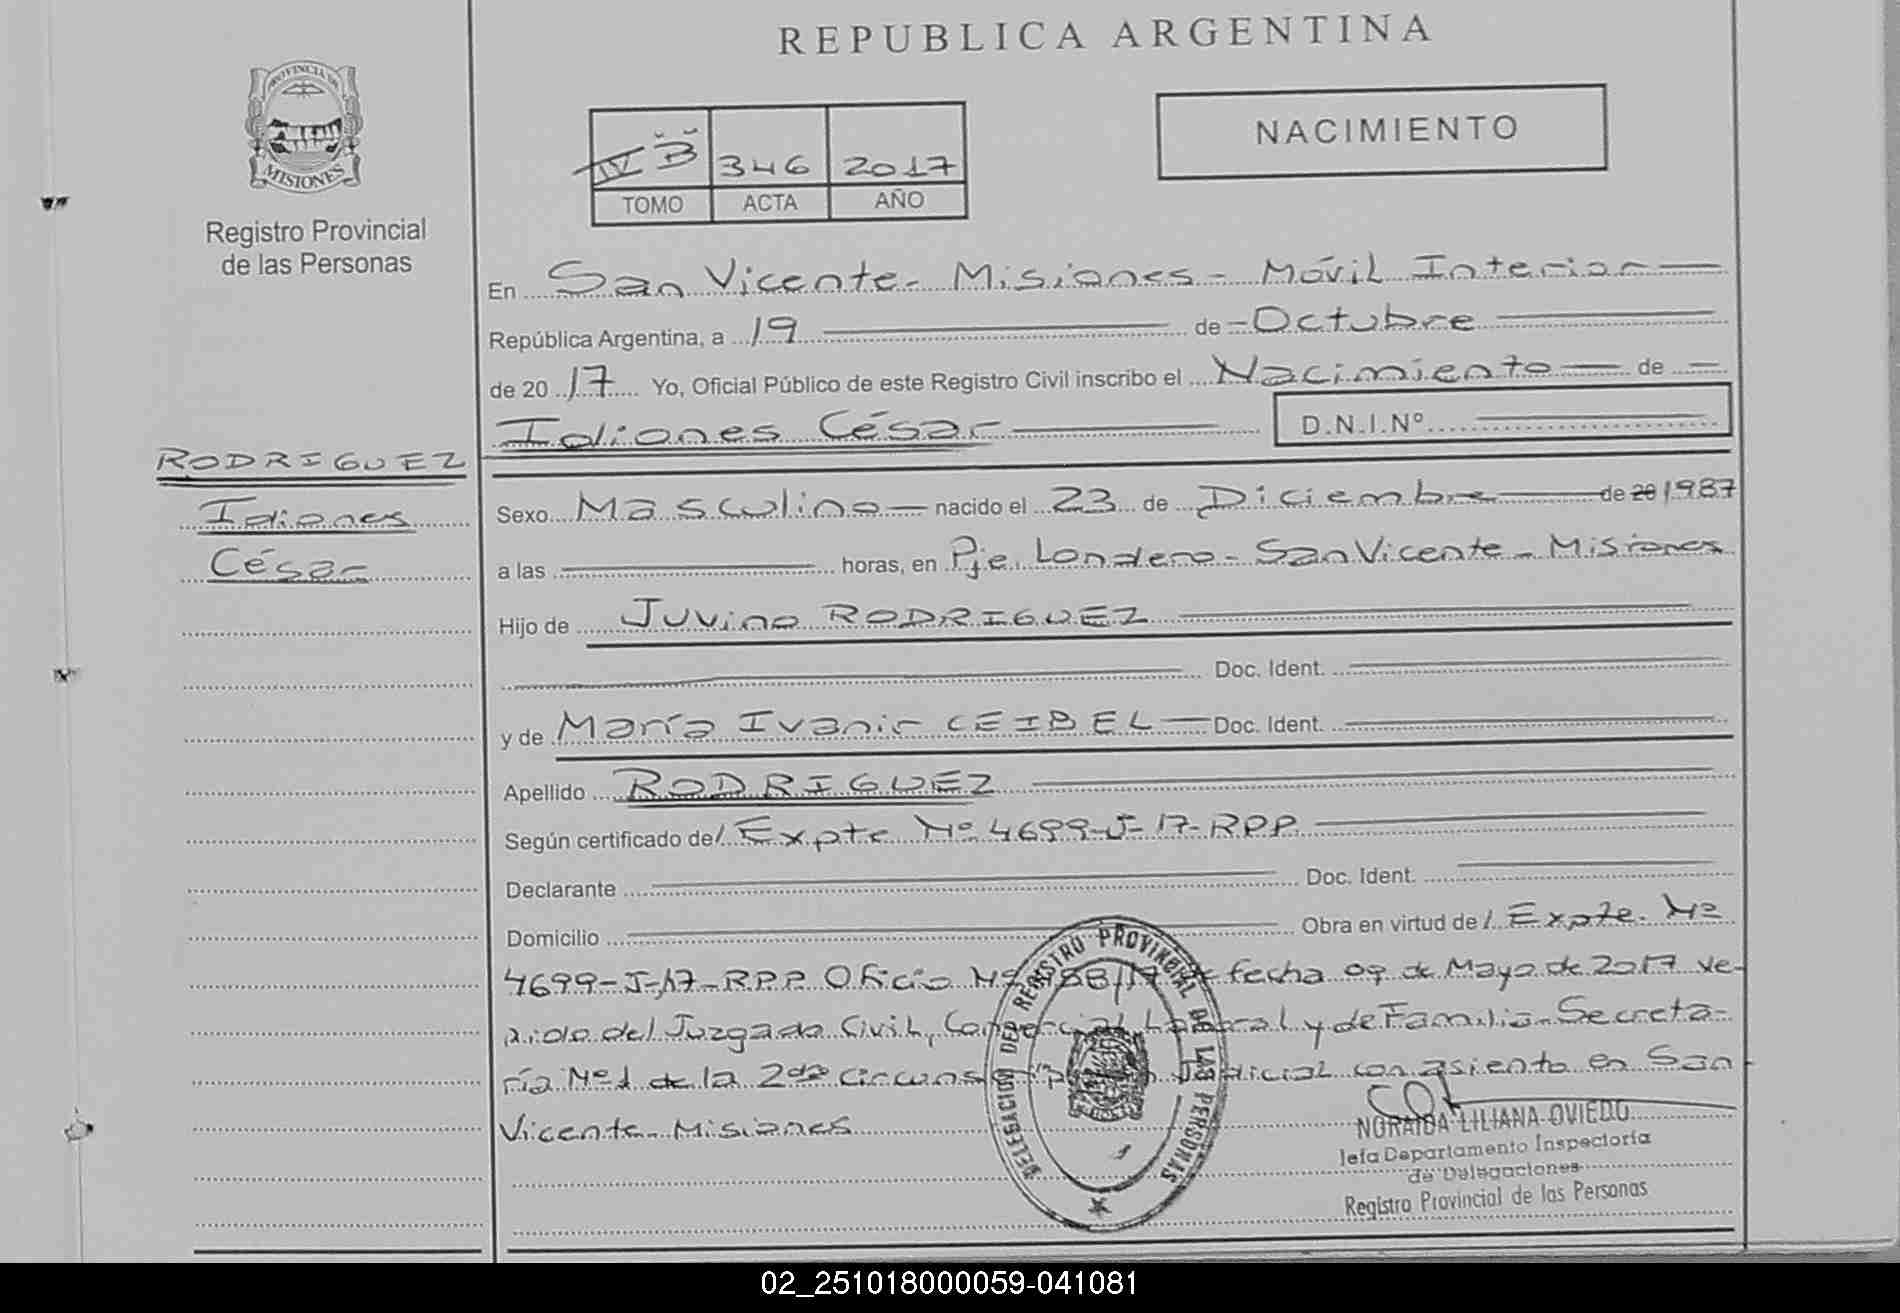 REPUBLICA ARGENTINA
PROVINCIA DE
MISIONES
Registro Provincial
de las Personas
NACIMIENTO
IV B 346 2017
TOMO ACTA AÑO
En San Vicente - Misiones - Móvil Interior
República Argentina, a 19 de Octubre
de 2017 Yo, Oficial Público de este Registro Civil inscribo el Nacimiento de
Idiones César D.N.I.Nº
RODRIGUEZ
Idiones
César
Sexo Masculino nacido el 23 de Diciembre de 20 1987
a las horas, en Pje. Londero - San Vicente - Misiones
Hijo de Juvino RODRIGUEZ
Doc. Ident.
y de María Ivanir CEIBEL Doc. Ident.
Apellido RODRIGUEZ
Según certificado de/ Expte Nº 4699-J-17-RPP
Declarante Doc. Ident.
Domicilio Obra en virtud de/ Expte. Nº
4699-J-17-RPP. Oficio Nº 88/17 de fecha 09 de Mayo de 2017 ve-
nido del Juzgado Civil, Comercial, Laboral y de Familia - Secreta-
ría Nº1 de la 2da Circunscripción Judicial con asiento en San
Vicente - Misiones
DELEGACION DEL REGISTRO PROVINCIAL DE LAS PERSONAS
NORAIDA LILIANA OVIEDO
Jefa Departamento Inspectoría
de Delegaciones
Registro Provincial de las Personas
02_251018000059-041081